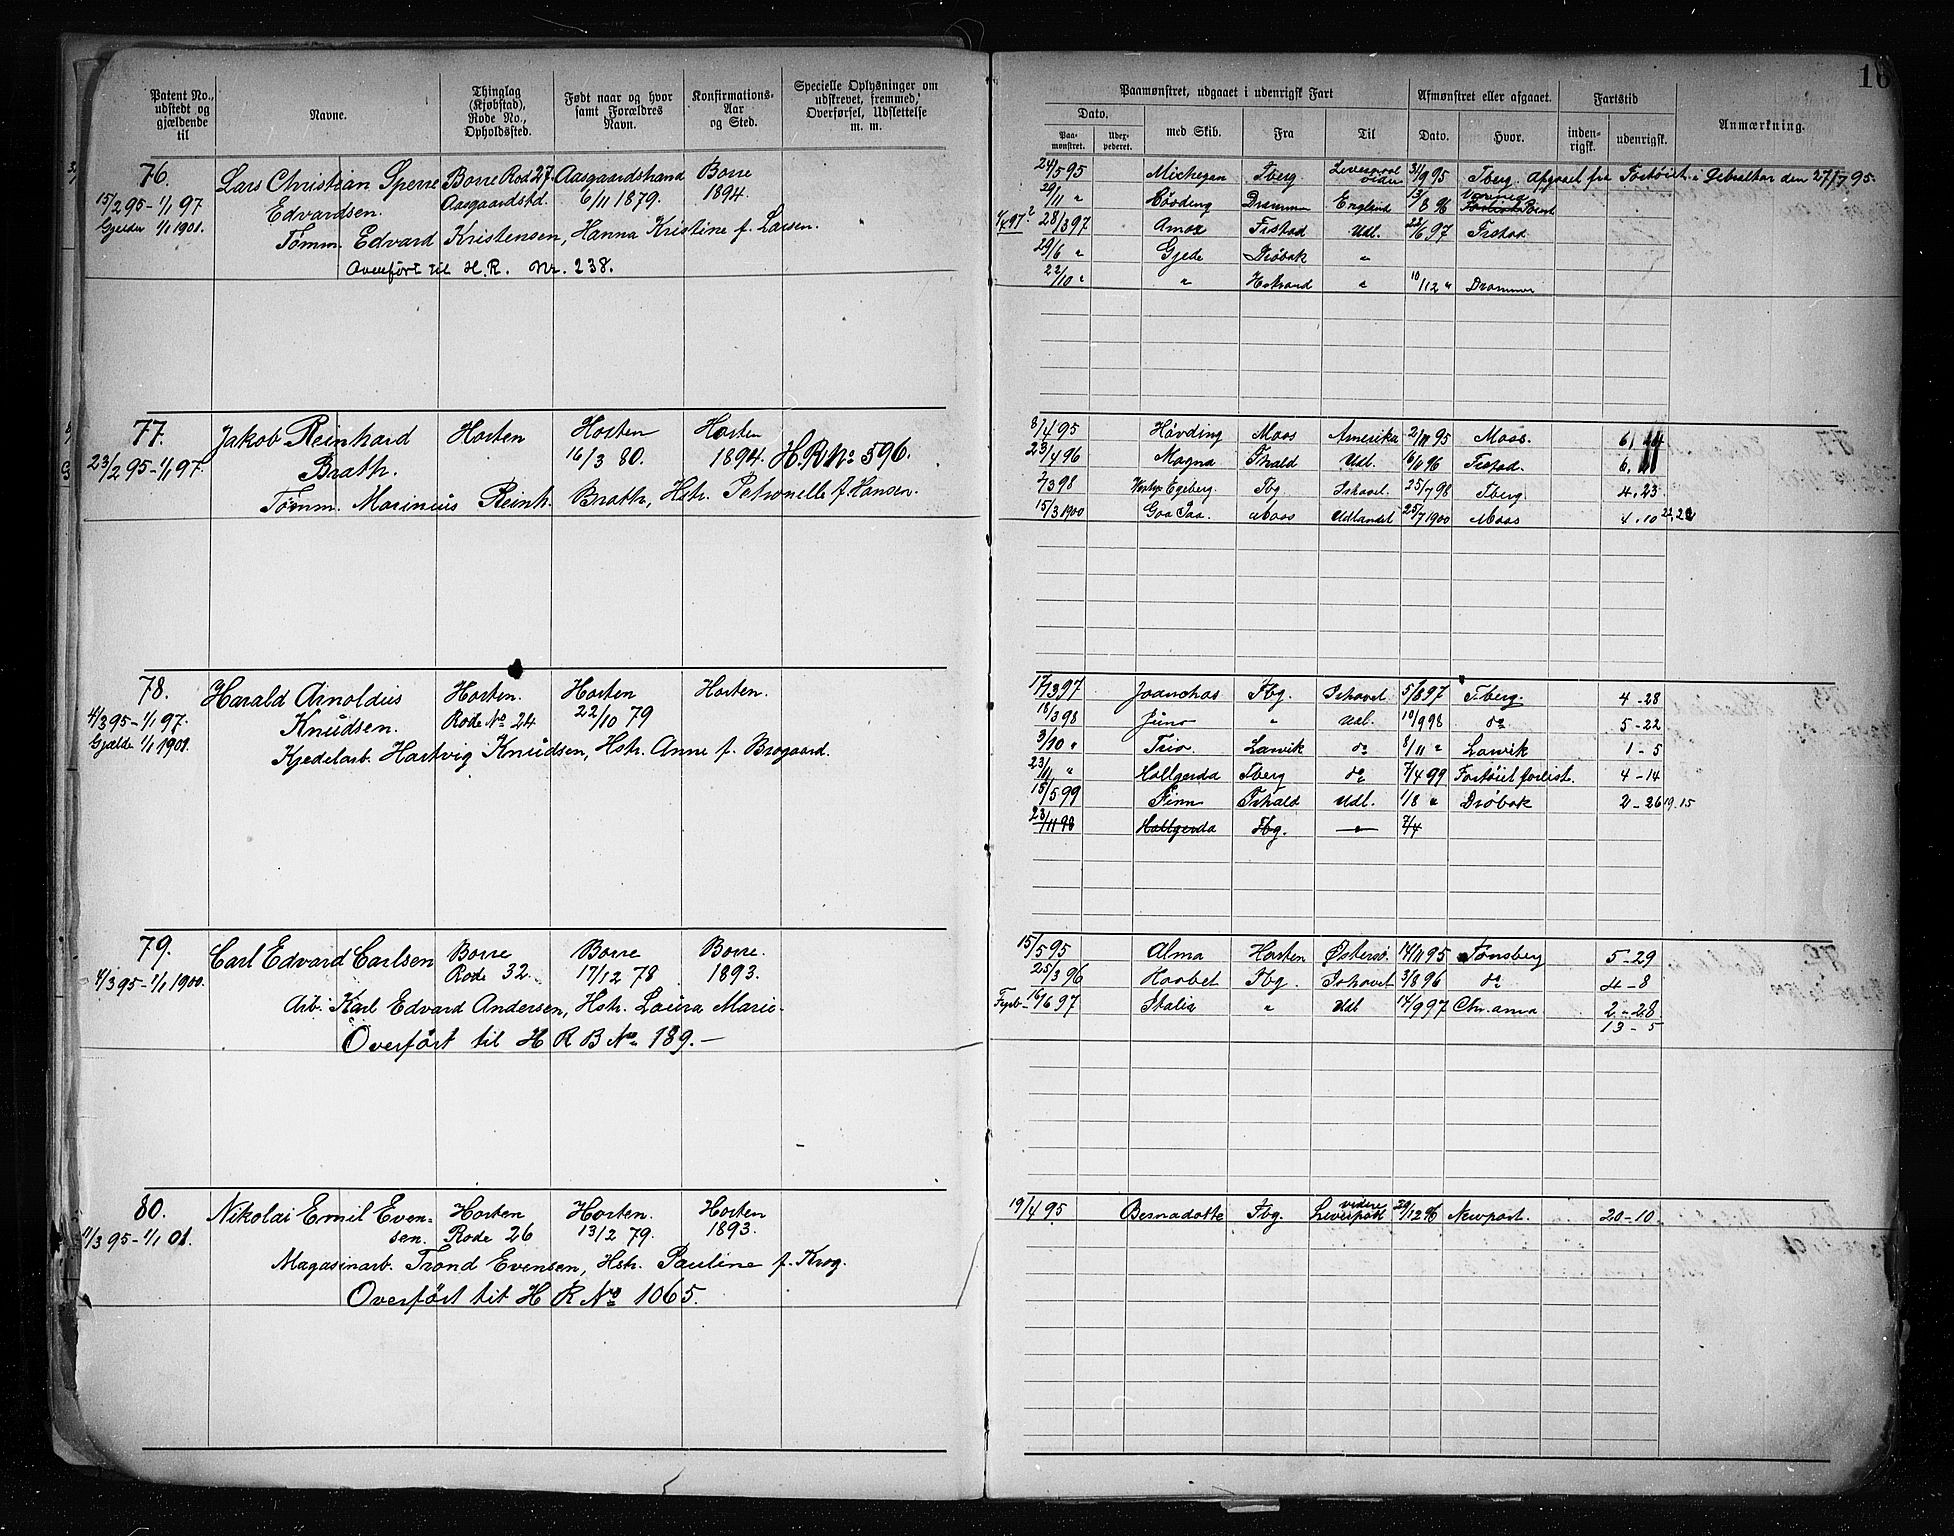 16
Patent No., udstedt og gjældende til
Navne.
Thinglag (Kjøbstad), Rode No., Opholdssted.
Født naar og hvor samt Forældres Navn.
Konfirmations-Aar og Sted.
Specielle Oplysninger om udskrevet, fremmed, Overførsel, Udslettelse m. m.
Paamønstret, udgaaet i udenrigsk Fart
Afmønstret eller afgaaet.
Fartstid
Anmærkning.
Dato.
Paa-mønstret.
Udex-pederet.
med Skib.
Fra
Til
Dato.
Hvor.
inden-rigsk.
udenrigsk.
76. Lars Christian Sperre Borre Rod 27. Aasgaardstrand Borre
15/2 95 - 1/1 97 Edvardsen. Aasgaardstd. 6/11 1879. 1894.
Gjelder 1/1 1901. Tømm. Edvard Kristensen, Hanna Kristine f. Larsen.
Overført til H.R. Nr. 238.
24/5 95 Michegan Tberg. Liverpool videre 31/9 95 Tberg. Afgaaet fra Fartøiet i Gibraltar den 27/7 95.
29/11 " Høvding Drammen England 3/8 96
28/3 97 Amor Frstad Udl. 22/6 97 Frstad
29/6 " Gjede Drøbak "
22/10 " " Hstrand " 10/12 " Drammen
77. Jakob Reinhard Horten Horten Horten
23/2 95 - 1/1 97. Brath. 16/3 80. 1894. H.R No 596.
Tømm. Marinius Reinh. Brath, Hstr. Petronelle f. Hansen.
8/4 95 Høvding Moss Amerika 2/11 95 Moss.
23/4 96 Magna Frhald Udl. 16/11 96 Frstad.
2/3 98 Westye Egeberg. Fbg. Ishavet. 25/7 98 Tberg 4.23
15/3 1900 Goa Paa. Moss Udlandet 25/7 1900 Moss 4.10
78. Harald Arnoldus Horten. Horten Horten.
4/3 95 - 1/1 97. Knudsen. Rode No 24 22/10 79
Gjælder 1/1 1901. Kjedelarb. Hartvig Knudsen, Hstr. Anne f. Brogaard.
17/3 97 Joanchas Fbg. Ishavet 5/8 97 Tberg. 4 - 28
18/3 98 Juno " Udl. 10/9 98 do 5 - 22
3/10 " Trio Larvik do 8/11 " Larvik 1 - 5
23/11 " Hallgerda Tberg do 7/4 99 Fartøiet forlist. 4 - 14
15/5 99 Finn Frhald Udl. 1/8 " Drøbak 2 - 26 19.15
23/11 98 Hallgerda Fbg. " 7/4
79. Carl Edvard Carlsen Borre Borre Borre.
4/3 95 - 1/1 1900. Rode 32. 17/12 78 1893.
Arb. Karl Edvard Andersen, Hstr. Laura Marie.
Overført til H R B No 189. -
15/5 95 Alma Horten Østersø. 14/11 95 Tønsberg 5 - 29
25/3 96 Haabet Fbg. Ishavet 3/8 96 do 4 - 8
16/6 97 Italia " Udl 14/9 97 Chr.ania 2 - 28
13 - 5
80. Nikolai Emil Even- Horten Horten. Horten
11/3 95 - 1/1 01. sen. Rode 26 13/2 79. 1893.
Magasinarb. Trond Evensen, Hstr. Pauline f. Krog.
Overført til H R No 1065.
19/4 95 Bernadotte Fbg. Liverpool videre 29/12 96 Newport. 20 - 10.